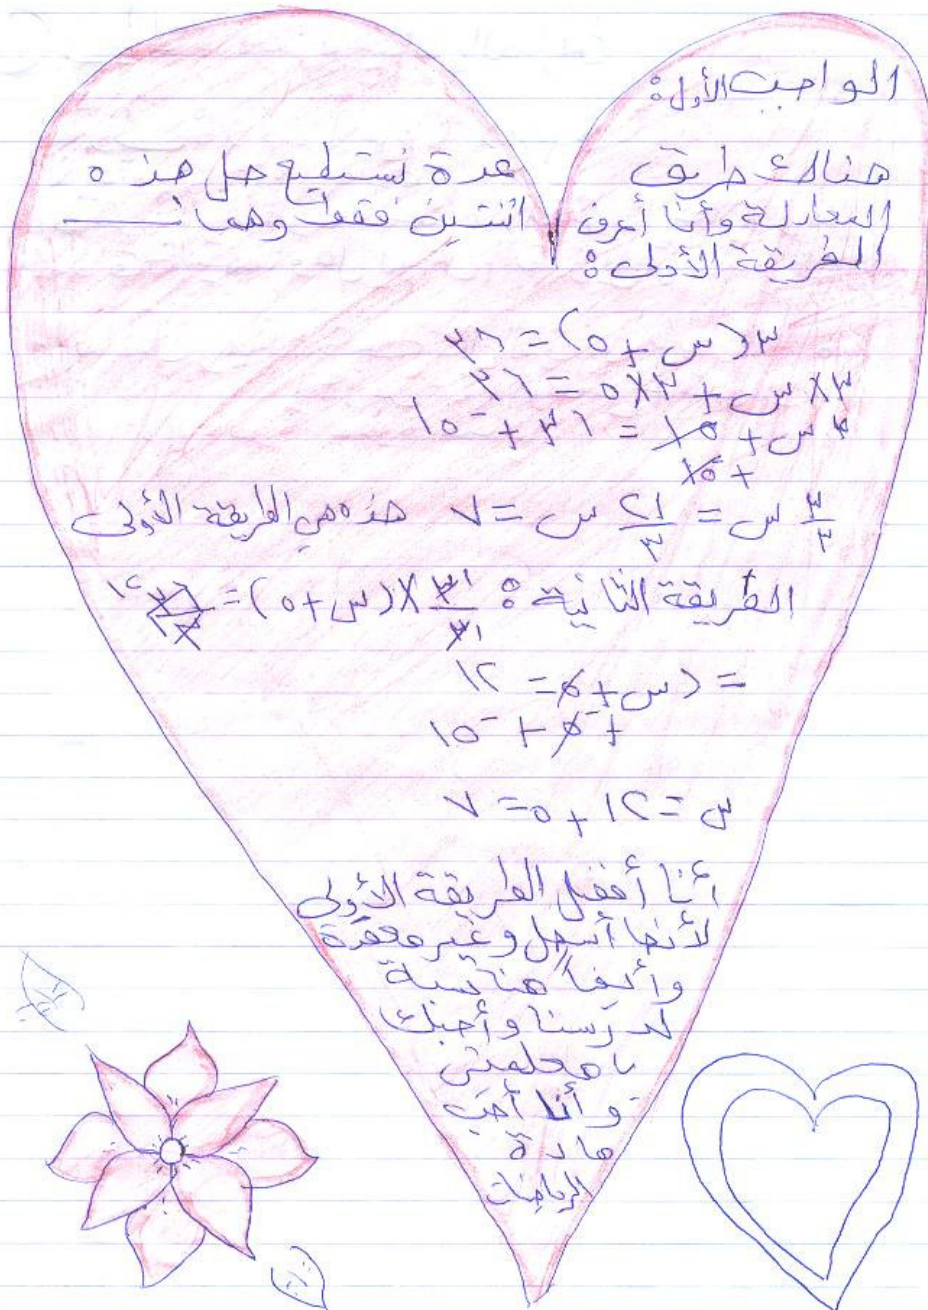 الواجب الأول:
هنالك طريق عدة نستطيع حل هذه
المعادلة وأنا أعرف اثنتين فقط وهما
الطريقة الأولى:
٣(س + ٥) = ٣٦
٣×س + ٣×٥ = ٣٦
٣س + ١٥ = ٣٦ + -١٥
+ -١٥
٣/٣ س = ٢١/٣ س = ٧ هذه هي الطريقة الأولى
الطريقة الثانية: ٣/٣ ×(س+٥) = ٣٦/٣ ١٢
= (س + ٥ = ١٢
+ -٥ + -١٥
س = ١٢ + ٥ = ٧
أنا أفضل الطريقة الأولى
لأنها أسهل وغير معقدة
وأيضاً مناسبة
لدرسنا وأحبك
يا معلمتي
وأنا أحب
مادة
الرياضيات